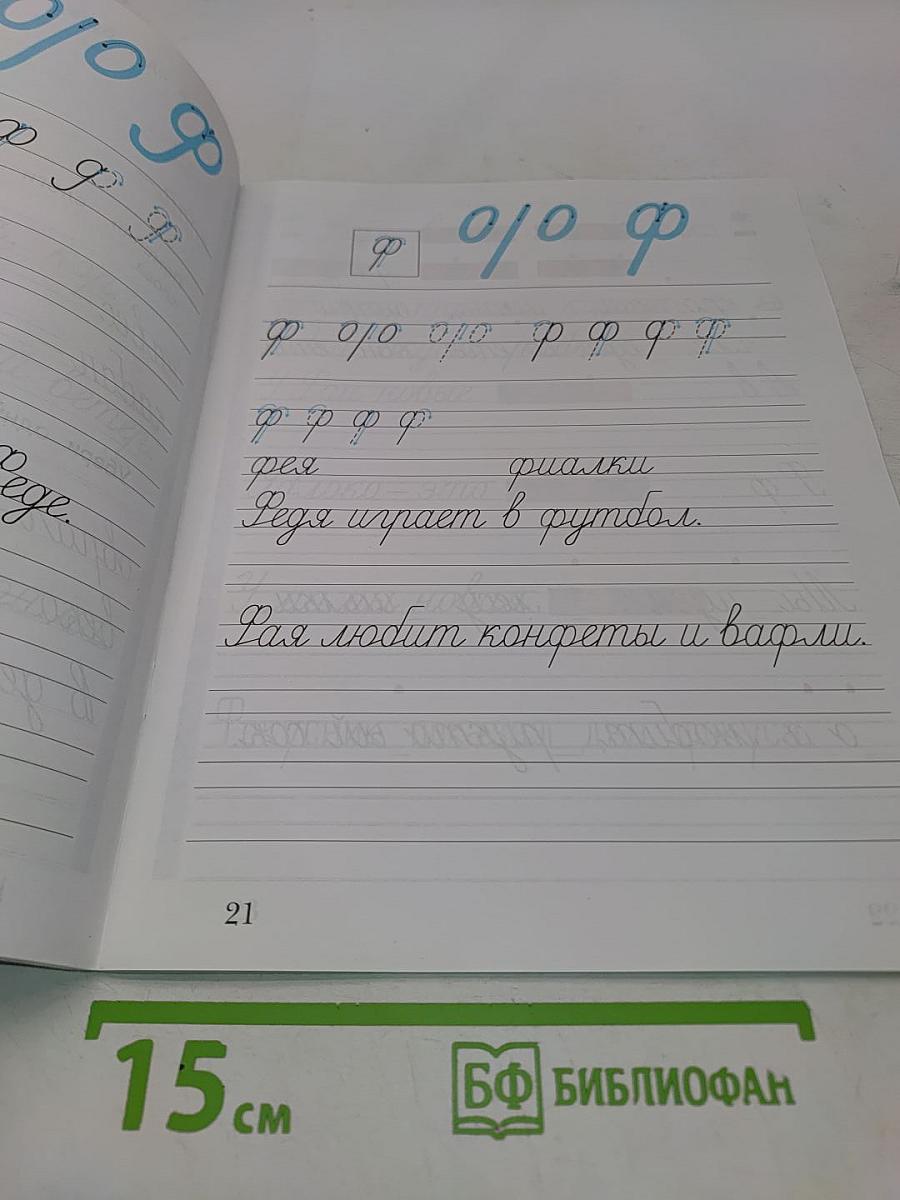 ф
ф
ф ф ф ф ф
ф ф ф ф
фея фиалки
Федя играет в футбол.
Фая любит конфеты и вафли.
21
еде.
15 см
БФ БИБЛИОФАН